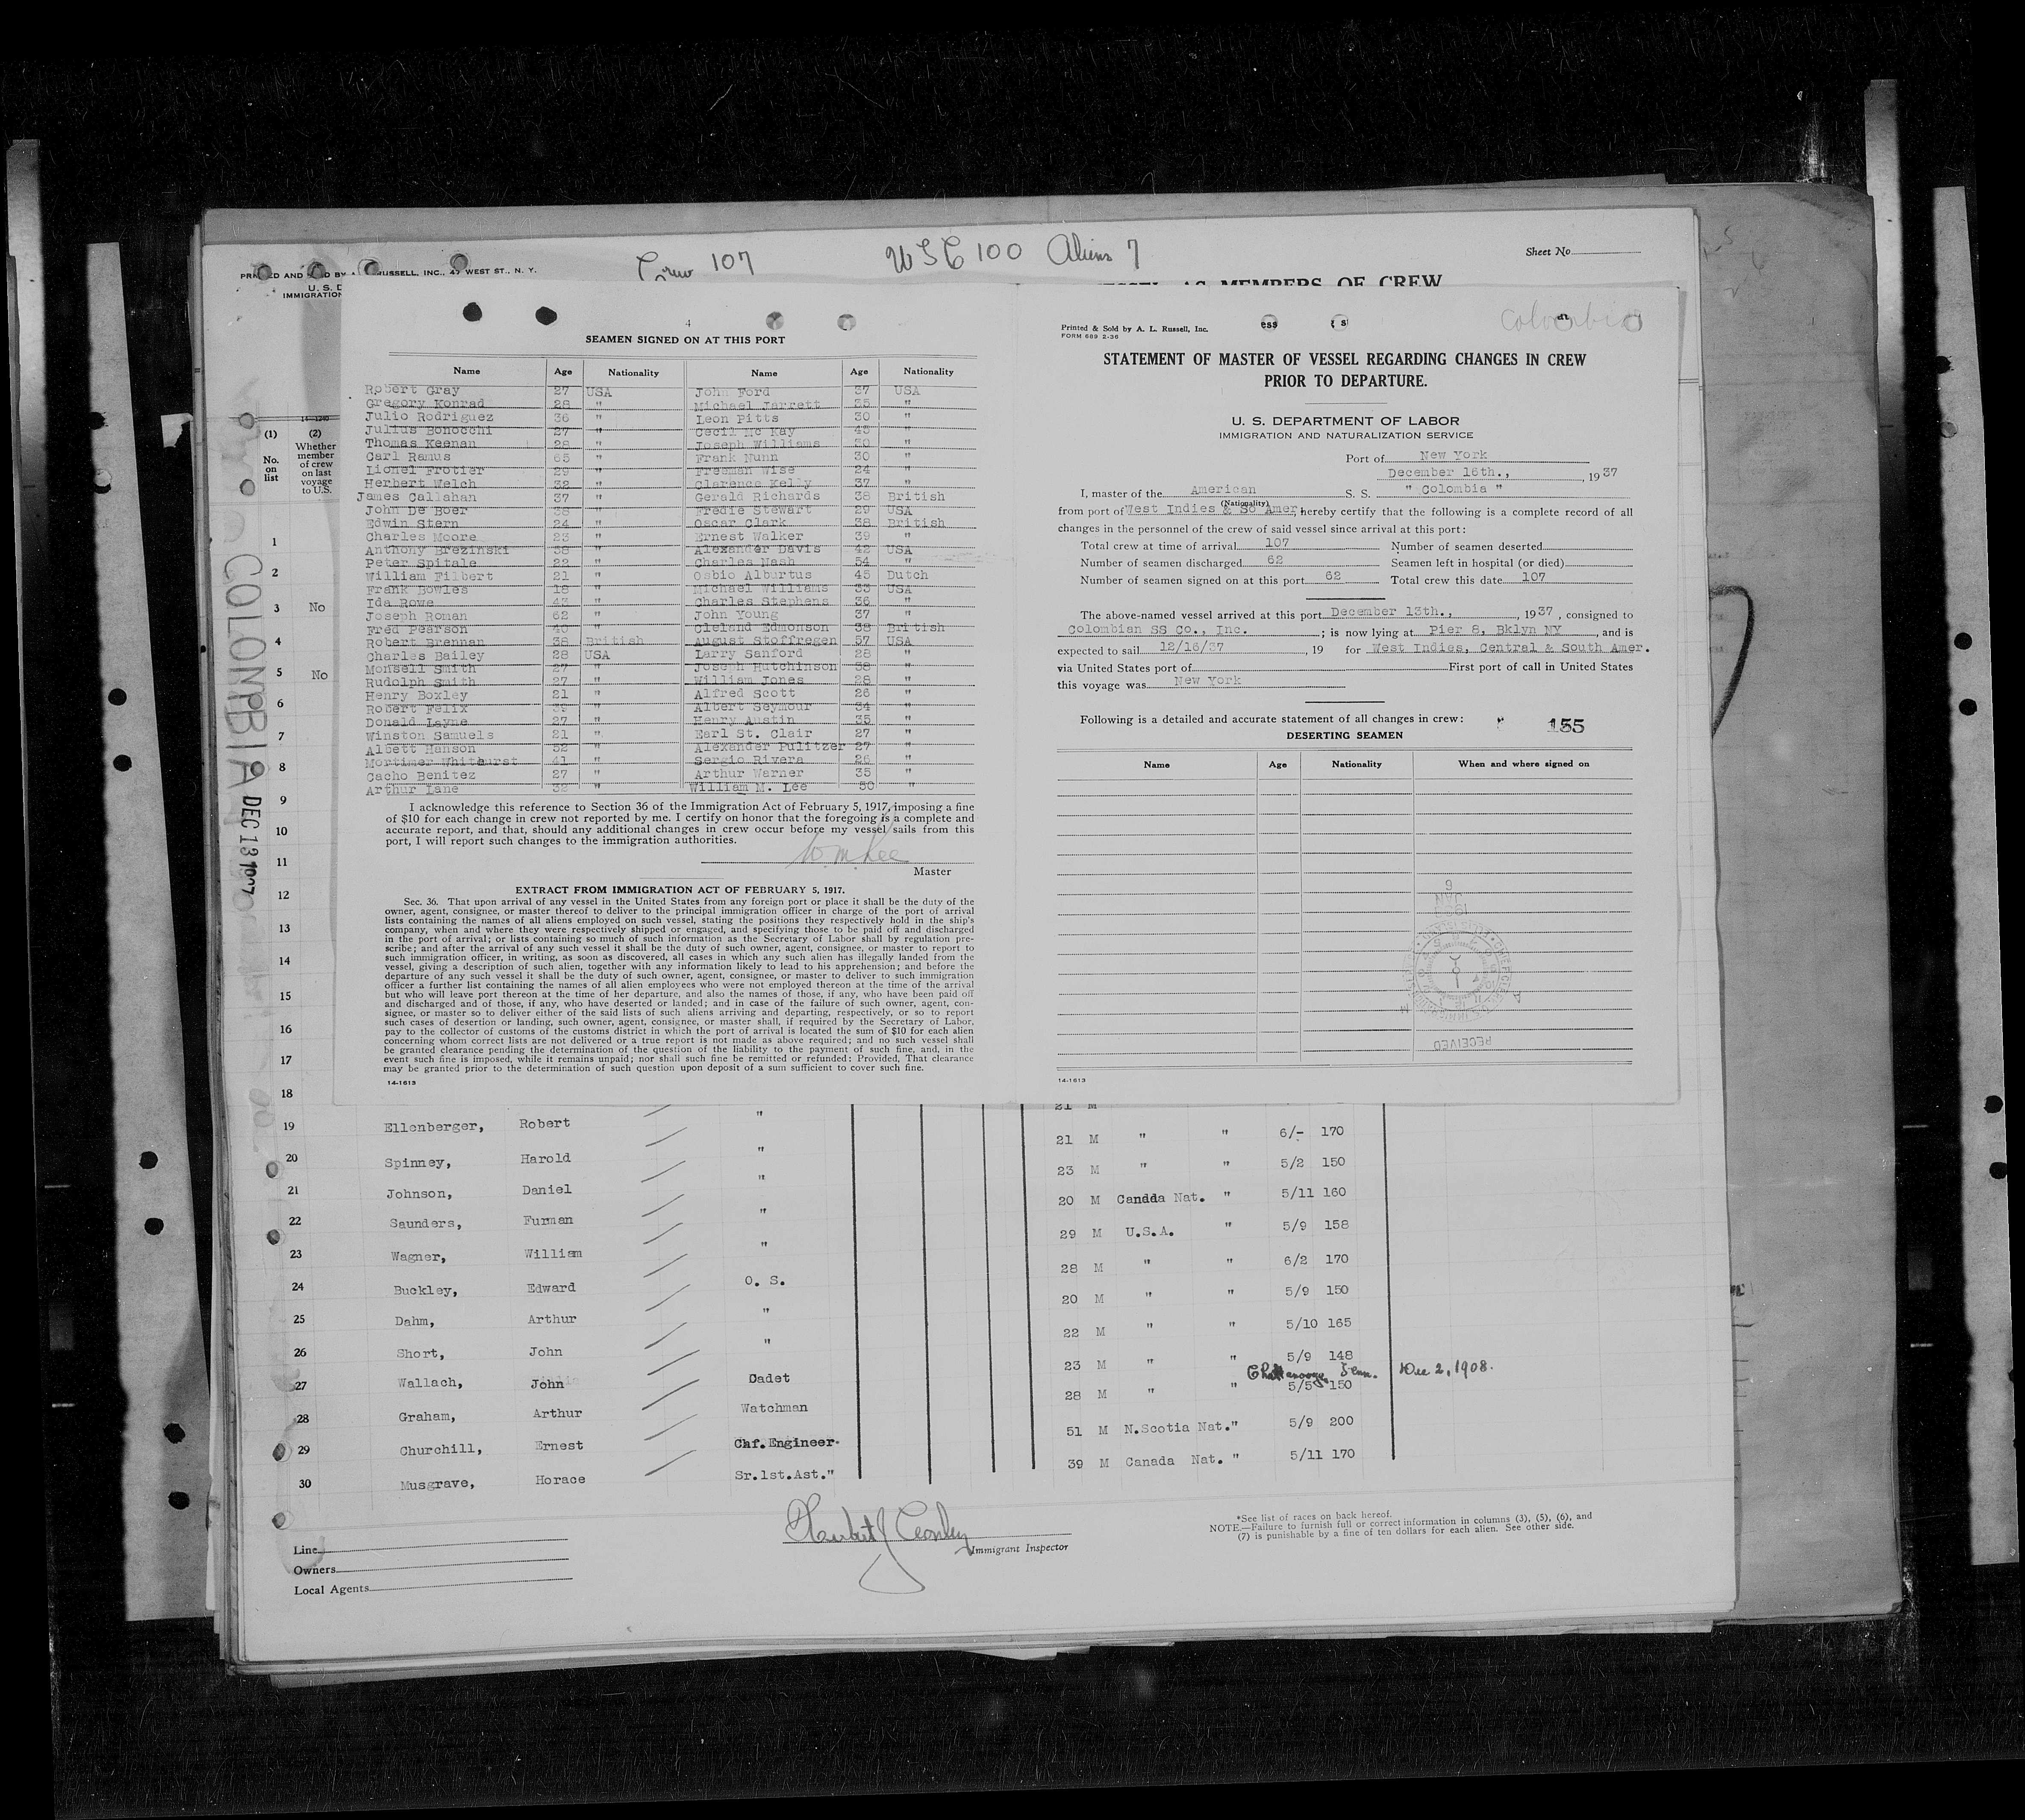 Crew 107 USC 100 Aliens 7
Sheet No
WEST ST., N. Y.
MEMBERS OF CREW
4
SEAMEN SIGNED ON AT THIS PORT
Name Age Nationality Name Age Nationality
Robert Gray 27 USA John Ford 37 USA
Gregory Konrad 28 " Michael Jarrett 35 "
Julio Rodriguez 36 " Leon Pitts 30 "
Julius Bonocchi 27 " Cecil Mc Kay 45 "
Thomas Keenan 28 " Joseph Williams 30 "
Carl Ramus 65 " Frank Nunn 30 "
Lionel Frotier 29 " Freeman Wise 24 "
Herbert Welch 32 " Clarence Kelly 37 "
James Callahan 37 " Gerald Richards 38 British
John De Boer 38 " Fredie Stewart 29 USA
Edwin Stern 24 " Oscar Clark 38 British
Charles Moore 23 " Ernest Walker 39 "
Anthony Brezinski 38 " Alexander Davis 42 USA
Peter Spitale 22 " Charles Nash 54 "
William Filbert 21 " Osbio Albertus 45 Dutch
Frank Bowles 18 " Michael Williams 33 USA
Ida Rowe 43 " Charles Stephens 36 "
Joseph Roman 62 " John Young 37 "
Fred Pearson 40 " Cleland Edmonson 38 British
Robert Brennan 38 British August Stoffregen 57 USA
Charles Bailey 28 USA Larry Sanford 28 "
Monsell Smith 27 " Joseph Hutchinson 38 "
Rudolph Smith 27 " William Jones 28 "
Henry Boxley 21 " Alfred Scott 26 "
Robert Felix 39 " Albert Seymour 34 "
Donald Layne 27 " Henry Austin 35 "
Winston Samuels 21 " Earl St. Clair 27 "
Albett Hanson 32 " Alexander Pulitzer 27 "
Mortimer Whithurst 41 " Sergio Rivera 26 "
Cacho Benitez 27 " Arthur Warner 35 "
Arthur Lane 32 " William M. Lee 50 "
I acknowledge this reference to Section 36 of the Immigration Act of February 5, 1917, imposing a fine
of $10 for each change in crew not reported by me. I certify on honor that the foregoing is a complete and
accurate report, and that, should any additional changes in crew occur before my vessel sails from this
port, I will report such changes to the immigration authorities.
Wm Lee
Master
EXTRACT FROM IMMIGRATION ACT OF FEBRUARY 5, 1917.
Sec. 36. That upon arrival of any vessel in the United States from any foreign port or place it shall be the duty of the
owner, agent, consignee, or master thereof to deliver to the principal immigration officer in charge of the port of arrival
lists containing the names of all aliens employed on such vessel, stating the positions they respectively hold in the ship's
company, when and where they were respectively shipped or engaged, and specifying those to be paid off and discharged
in the port of arrival; or lists containing so much of such information as the Secretary of Labor shall by regulation pre-
scribe; and after the arrival of any such vessel it shall be the duty of such owner, agent, consignee, or master to report to
such immigration officer, in writing, as soon as discovered, all cases in which any such alien has illegally landed from the
vessel, giving a description of such alien, together with any information likely to lead to his apprehension; and before the
departure of any such vessel it shall be the duty of such owner, agent, consignee, or master to deliver to such immigration
officer a further list containing the names of all alien employees who were not employed thereon at the time of the arrival
but who will leave port thereon at the time of her departure, and also the names of those, if any, who have been paid off
and discharged and of those, if any, who have deserted or landed; and in case of the failure of such owner, agent, con-
signee, or master so to deliver either of the said lists of such aliens arriving and departing, respectively, or so to report
such cases of desertion or landing, such owner, agent, consignee, or master shall, if required by the Secretary of Labor,
pay to the collector of customs of the customs district in which the port of arrival is located the sum of $10 for each alien
concerning whom correct lists are not delivered or a true report is not made as above required; and no such vessel shall
be granted clearance pending the determination of the question of the liability to the payment of such fine, and, in the
event such fine is imposed, while it remains unpaid; nor shall such fine be remitted or refunded: Provided, That clearance
may be granted prior to the determination of such question upon deposit of a sum sufficient to cover such fine.
14-1613
Colombia
Printed & Sold by A. L. Russell, Inc.
FORM 689 2-36
STATEMENT OF MASTER OF VESSEL REGARDING CHANGES IN CREW
PRIOR TO DEPARTURE.
U. S. DEPARTMENT OF LABOR
IMMIGRATION AND NATURALIZATION SERVICE
Port of New York
December 16th., , 1937
I, master of the American S. S. " Colombia "
(Nationality)
from port of West Indies & So Amer, hereby certify that the following is a complete record of all
changes in the personnel of the crew of said vessel since arrival at this port:
Total crew at time of arrival 107 Number of seamen deserted
Number of seamen discharged 62 Seamen left in hospital (or died)
Number of seamen signed on at this port 62 Total crew this date 107
The above-named vessel arrived at this port December 13th., , 1937, consigned to
Colombian SS Co., Inc. ; is now lying at Pier 8, Bklyn NY , and is
expected to sail 12/16/37 , 19 for West Indies, Central & South Amer.
via United States port of First port of call in United States
this voyage was New York
Following is a detailed and accurate statement of all changes in crew: 155
DESERTING SEAMEN
Name Age Nationality When and where signed on
RECEIVED
14-1613
COLOMBIA DEC 13 1937
(1) (2)
No. on list
Whether member of crew on last voyage to U.S.
1
2
3 No
4
5 No
6
7
8
9
10
11
12
13
14
15
16
17
18 " 21 M
19 Ellenberger, Robert " 21 M " " 6/- 170
20 Spinney, Harold " 23 M " " 5/2 150
21 Johnson, Daniel " 20 M Candda Nat. " 5/11 160
22 Saunders, Furman " 29 M U.S.A. " 5/9 158
23 Wagner, William " 28 M " " 6/2 170
24 Buckley, Edward O. S. 20 M " " 5/9 150
25 Dahm, Arthur " 22 M " " 5/10 165
26 Short, John " 23 M " " 5/9 148
Chattanooga Tenn. Dec 2, 1908.
27 Wallach, John Cadet 28 M " " 5/5 150
28 Graham, Arthur Watchman 51 M N.Scotia Nat." 5/9 200
29 Churchill, Ernest Chf. Engineer 39 M Canada Nat. " 5/11 170
30 Musgrave, Horace Sr.1st.Ast."
Immigrant Inspector
*See list of races on back hereof.
NOTE.—Failure to furnish full or correct information in columns (3), (5), (6), and
(7) is punishable by a fine of ten dollars for each alien. See other side.
Line
Owners
Local Agents